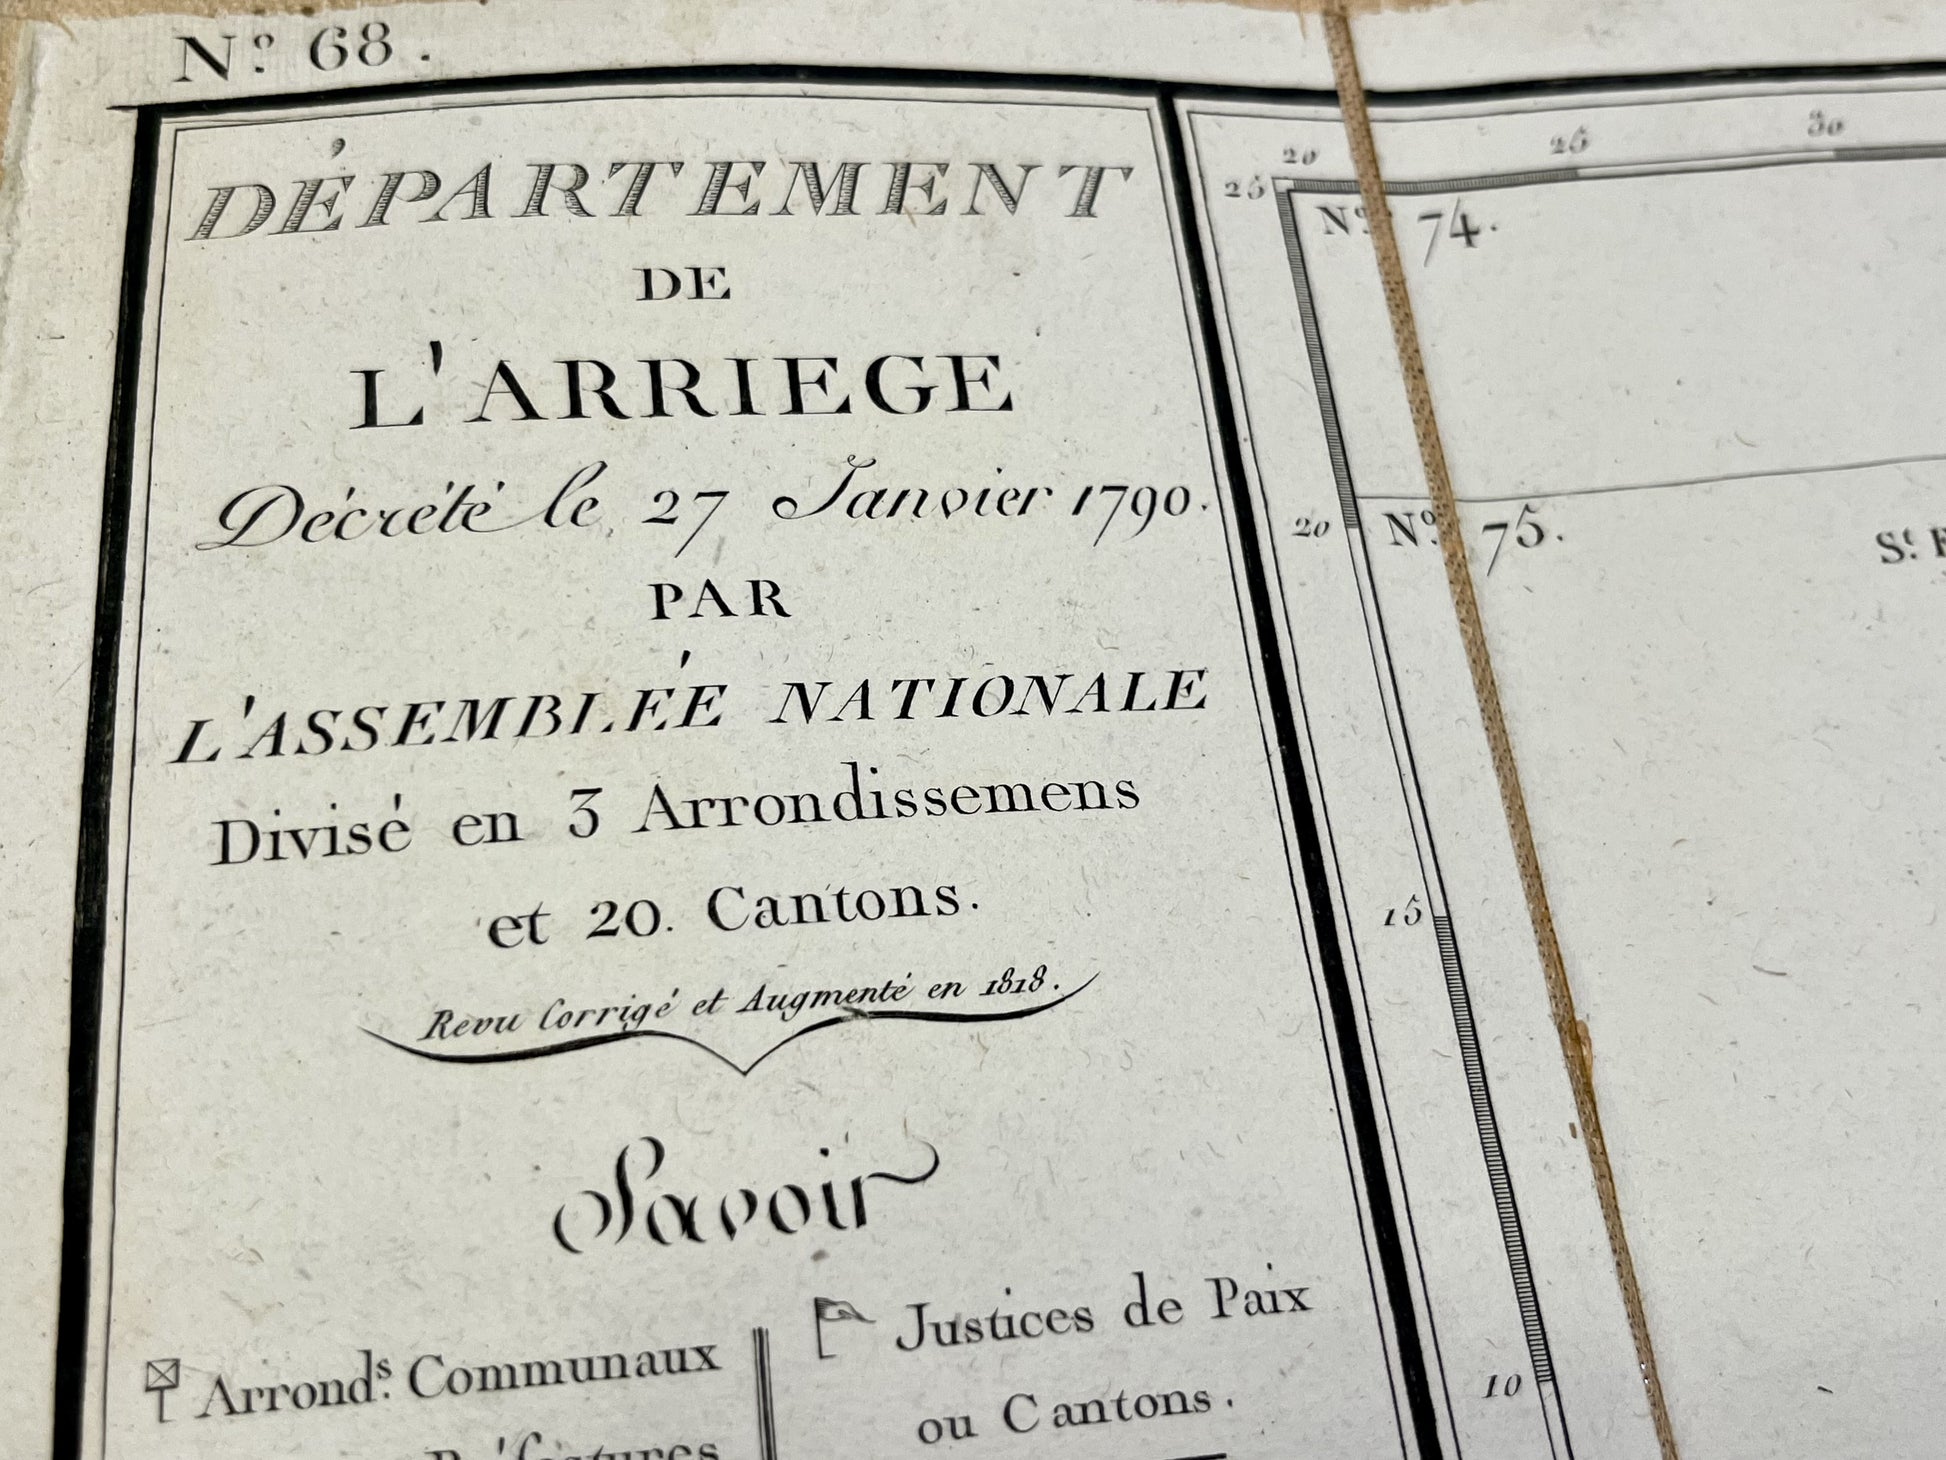 Nº. 68.
DÉPARTEMENT
DE
L'ARRIEGE
Décrété le 27 Janvier 1790.
PAR
L'ASSEMBLÉE NATIONALE
Divisé en 3 Arrondissemens
et 20. Cantons.
Revu Corrigé et Augmenté en 1818.
Savoir
Arronds. Communaux
Justices de Paix
ou Cantons.
20 25 30
25
Nº. 74.
20
Nº. 75.
St.
15
10